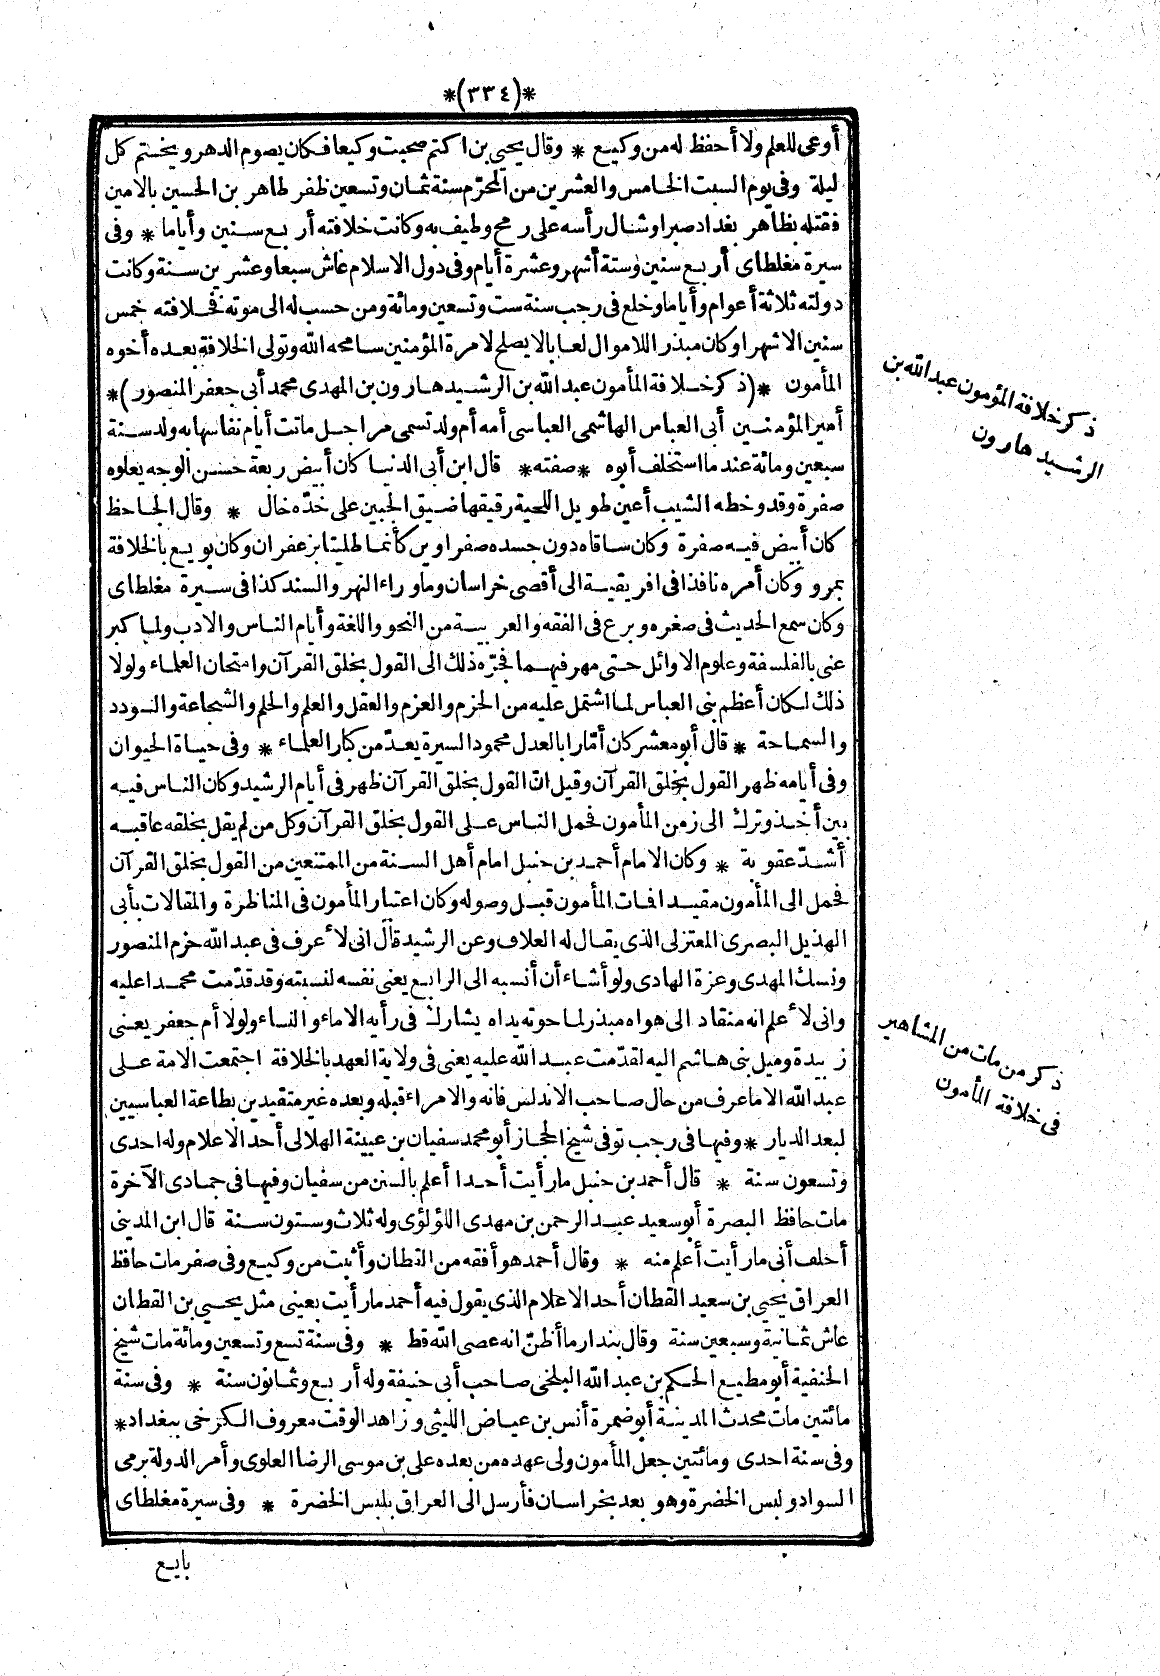 *(٣٣٤)*
أوعى للعلم ولا أحفظ له من وكيع * وقال يحيى بن اكتم صحبت وكيعا فكان يصوم الدهر ويختم كل
ليلة وفى يوم السبت الخامس والعشرين من المحرّم سنة ثمان وتسعين ظفر طاهر بن الحسين بالامين
فقتله بظاهر بغداد صبرا وشال رأسه على رمح وطيف به وكانت خلافته أربع سنين وأياما * وفى
سيرة مغلطاى أربع سنين وستة أشهر وعشرة أيام وفى دول الاسلام عاش سبعا وعشرين سنة وكانت
دولته ثلاثة أعوام وأياما وخلع فى رجب سنة ست وتسعين ومائة ومن حسب له الى موته فخلافته خمس
سنين الاشهرا وكان مبذرا للاموال لعابا لا يصلح لامرة المؤمنين سامحه الله وتولى الخلافة بعده أخوه
المأمون *(ذكر خلافة المأمون عبد الله بن الرشيد هارون بن المهدى محمد أبى جعفر المنصور)*
أمير المؤمنين أبى العباس الهاشمى العباسى أمه أم ولد تسمى مراجل ماتت أيام نفاسها به ولد سنة
سبعين ومائة عند ما استخلف أبوه *صفته* قال ابن أبى الدنيا كان أبيض ربعة حسن الوجه يعلوه
صفرة وقد وخطه الشيب أعين طويل اللحية رقيقها ضيق الجبين على خدّه خال * وقال الجاحظ
كان أبيض فيه صفرة وكان ساقاه دون جسده صفراوين كأنما طليتا بزعفران وكان بويع بالخلافة
بمرو وكان أمره نافذا فى افريقية الى أقصى خراسان وما وراء النهر والسند كذا فى سيرة مغلطاى
وكان سمع الحديث فى صغره وبرع فى الفقه والعربية من النحو واللغة وأيام الناس والادب ولما كبر
عنى بالفلسفة وعلوم الاوائل حتى مهر فيهما فجرّه ذلك الى القول بخلق القرآن وامتحان العلماء ولولا
ذلك لكان أعظم بنى العباس لما اشتمل عليه من الحزم والعزم والعقل والعلم والحلم والشجاعة والسودد
والسماحة * قال أبو معشر كان أمّارا بالعدل محمود السيرة يعدّ من كبار العلماء * وفى حياة الحيوان
وفى أيامه ظهر القول بخلق القرآن وقيل انّ القول بخلق القرآن ظهر فى أيام الرشيد وكان الناس فيه
بين أخذ وترك الى زمن المأمون فحمل الناس على القول بخلق القرآن وكل من لم يقل بخلقه عاقبه
أشدّ عقوبة * وكان الامام أحمد بن حنبل امام أهل السنة من الممتنعين من القول بخلق القرآن
فحمل الى المأمون مقيدا فمات المأمون قبل وصوله وكان اعتبار المأمون فى المناظرة والمقالات بأبى
الهذيل البصرى المعتزلى الذى يقال له العلاف وعن الرشيد قال انى لأعرف فى عبد الله حزم المنصور
ونسك المهدى وعزة الهادى ولو أشاء أن أنسبه الى الرابع يعنى نفسه لنسبته وقد قدّمت محمدا عليه
وانى لأعلم انه منقاد الى هواه مبذر لما حوته يداه يشارك فى رأيه الاماء والنساء ولولا أم جعفر يعنى
زبيدة وميل بنى هاشم اليه لقدّمت عبد الله عليه يعنى فى ولاية العهد بالخلافة اجتمعت الامة على
عبد الله الا ما عرف من حال صاحب الاندلس فانه والامراء قبله وبعده غير متقيدين بطاعة العباسيين
لبعد الديار * وفيها فى رجب توفى شيخ الحجاز أبو محمد سفيان بن عيينة الهلالى أحد الاعلام وله احدى
وتسعون سنة * قال أحمد بن حنبل ما رأيت أحدا أعلم بالسنن من سفيان وفيها فى جمادى الآخرة
مات حافظ البصرة أبو سعيد عبد الرحمن بن مهدى اللؤلؤى وله ثلاث وستون سنة قال ابن المدينى
أحلف أنى ما رأيت أعلم منه * وقال أحمد هو أفقه من القطان وأثبت من وكيع وفى صفر مات حافظ
العراق يحيى بن سعيد القطان أحد الاعلام الذى يقول فيه أحمد ما رأيت بعينى مثل يحيى بن القطان
عاش ثمانية وسبعين سنة وقال بندار ما أظنّ انه عصى الله قط * وفى سنة تسع وتسعين ومائة مات شيخ
الحنفية أبو مطيع الحكم بن عبد الله البلخى صاحب أبى حنيفة وله أربع وثمانون سنة * وفى سنة
مائتين مات محدث المدينة أبو ضمرة أنس بن عياض الليثى وزاهد الوقت معروف الكرخى ببغداد *
وفى سنة احدى ومائتين جعل المأمون ولى عهده من بعده على بن موسى الرضا العلوى وأمر الدولة برمى
السواد ولبس الخضرة وهو بعد بخراسان فأرسل الى العراق بلبس الخضرة * وفى سيرة مغلطاى
بايع
ذكر خلافة المؤمون عبد الله بن
الرشيد هارون
ذكر من مات من المشاهير
فى خلافة المأمون